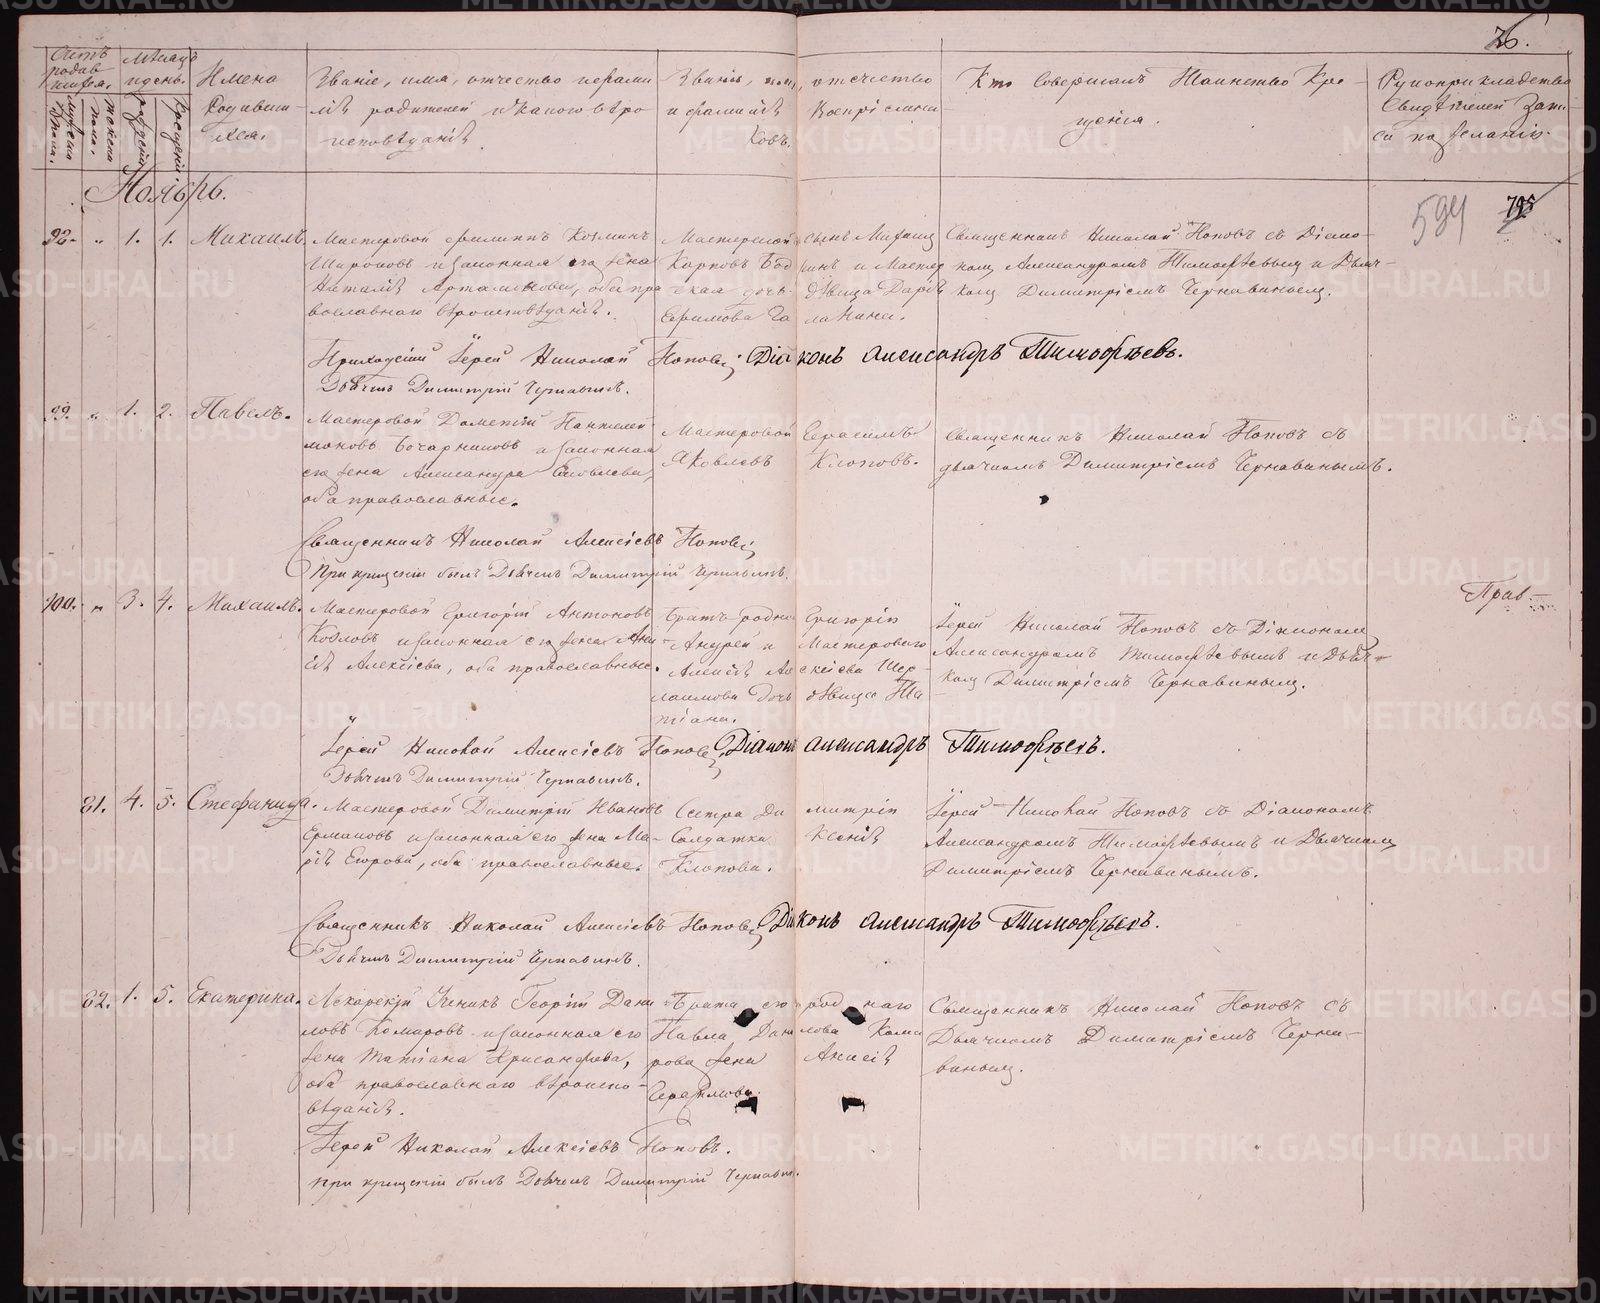 26.
Счетъ родив-
шихся.
Мѣсяцъ
и день.
мужеска
пола.
женска
пола.
рожденія
крещенія
Имена
Родивши-
хся.
Званіе, имя, отчество и фами-
лія родителей и какого вѣро
исповѣданія.
Званіе, имя, отчество
и фамилія Воспріемни
ковъ.
Кто совершалъ Таинство Кре-
щенія.
Рукоприкладство
Свидѣтелей запи-
си по желанію.
Ноябрь.
594
795
1. 1. Михаилъ.
Мастеровой Филиппъ Козминъ
Широковъ и законная его жена
Наталія Артамонова, оба пра
вославнаго вѣроисповѣданія.
Мастерской сынъ
Карповъ и Мастер
ская дочь дѣвица Дарія
Ефимова
Священникъ Николай Поповъ съ Діако-
номъ Александромъ Тимофѣевымъ и Дьяч-
комъ Димитріемъ Чернавинымъ.
Приходскій Іерей Николай Поповъ; Діаконъ Александръ Тимофѣевъ.
Дьячекъ Димитрій Чернавинъ.
99. " 1. 2. Павелъ.
Мастеровой Дометій Пантелей
моновъ Бочарниковъ и законная
его жена Александра Яковлева,
оба православные.
Мастеровой Герасимъ
Яковлевъ Клоповъ.
Священникъ Николай Поповъ съ
дьячкомъ Димитріемъ Чернавинымъ.
Священникъ Николай Алексіевъ Поповъ
При крещеніи былъ Дьячекъ Димитрій Чернавинъ.
100. " 3. 4. Михаилъ.
Мастеровой Григорій Антоновъ
Козловъ и законная его жена
Алексіева, оба православные.
Братъ родной Григорія
Андрей и Мастероваго
Алексія Алексіева
дочь дѣвица Та
тіана.
Іерей Николай Поповъ съ Діакономъ
Александромъ Тимофѣевымъ и Дьяч-
комъ Димитріемъ Чернавинымъ.
Прав-
Іерей Николай Алексіевъ Поповъ, Діаконъ Александръ Тимофѣевъ.
Дьячекъ Димитрій Чернавинъ.
81. 4. 5. Стефанида.
Мастеровой Димитрій Ивановъ
Ермаковъ и законная его жена Ма-
рія Егорова, оба православные.
Сестра Димитрія
Солдатка Ксенія
Клопова.
Іерей Николай Поповъ съ Діакономъ
Александромъ Тимофѣевымъ и Дьячкомъ
Димитріемъ Чернавинымъ.
Священникъ Николай Алексіевъ Поповъ, Діаконъ Александръ Тимофѣевъ.
Дьячекъ Димитрій Чернавинъ.
82. 1. 5. Екатерина.
Лекарскій Ученикъ Георгій Дани
ловъ Комаровъ и законная его
жена Татіана Хрисанфова,
оба православнаго вѣроиспо-
вѣданія.
Брата его роднаго
Павла Данилова Кома
рова жена Анисія
Герасимова.
Священникъ Николай Поповъ съ
Дьячкомъ Димитріемъ Черна-
винымъ.
Іерей Николай Алексіевъ Поповъ.
при крещеніи былъ Дьячекъ Димитрій Чернавин.
METRIKI.GASO-URAL.RU